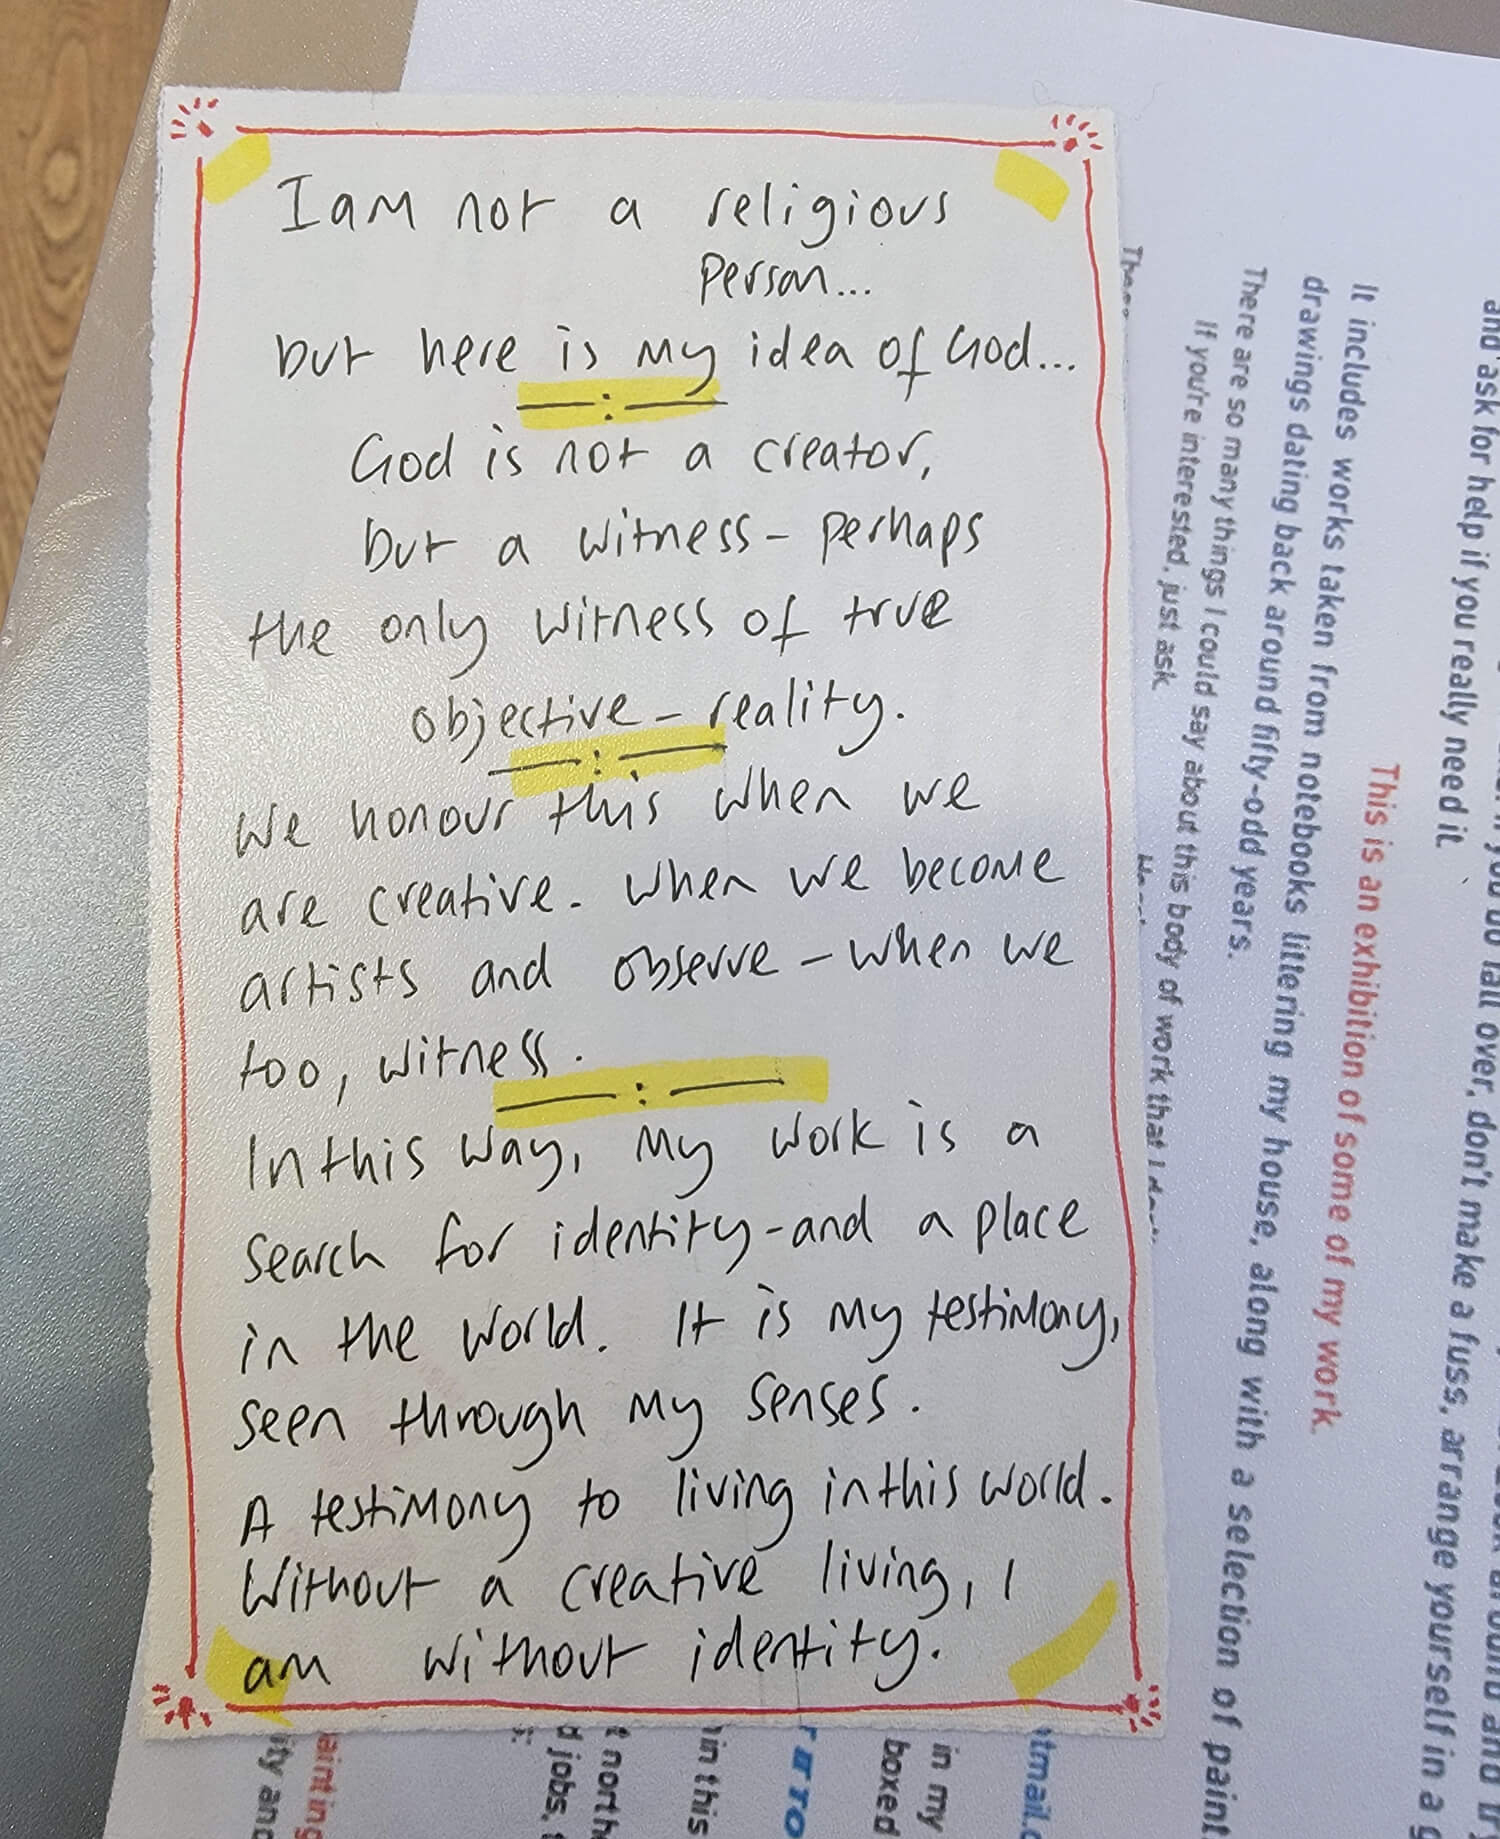 I am not a religious
person...
but here is my idea of God...
God is not a creator,
but a witness - perhaps
the only witness of true
objective - reality.
We honour this when we
are creative. When we become
artists and observe - when we
too, witness.
In this way, my work is a
search for identity - and a place
in the world. It is my testimony,
seen through my senses.
A testimony to living in this world.
Without a creative living, I
am without identity.
and ask for help if you really need it.
fall over, don't make a fuss, arrange yourself in a
This is an exhibition of some of my work
It includes works taken from notebooks littering my house, along with a selection of paint
drawings dating back around fifty-odd years.
There are so many things I could say about this body of work that I
If you're interested, just ask.
in my
boxed
TO
in this
north
d jobs,
ity and